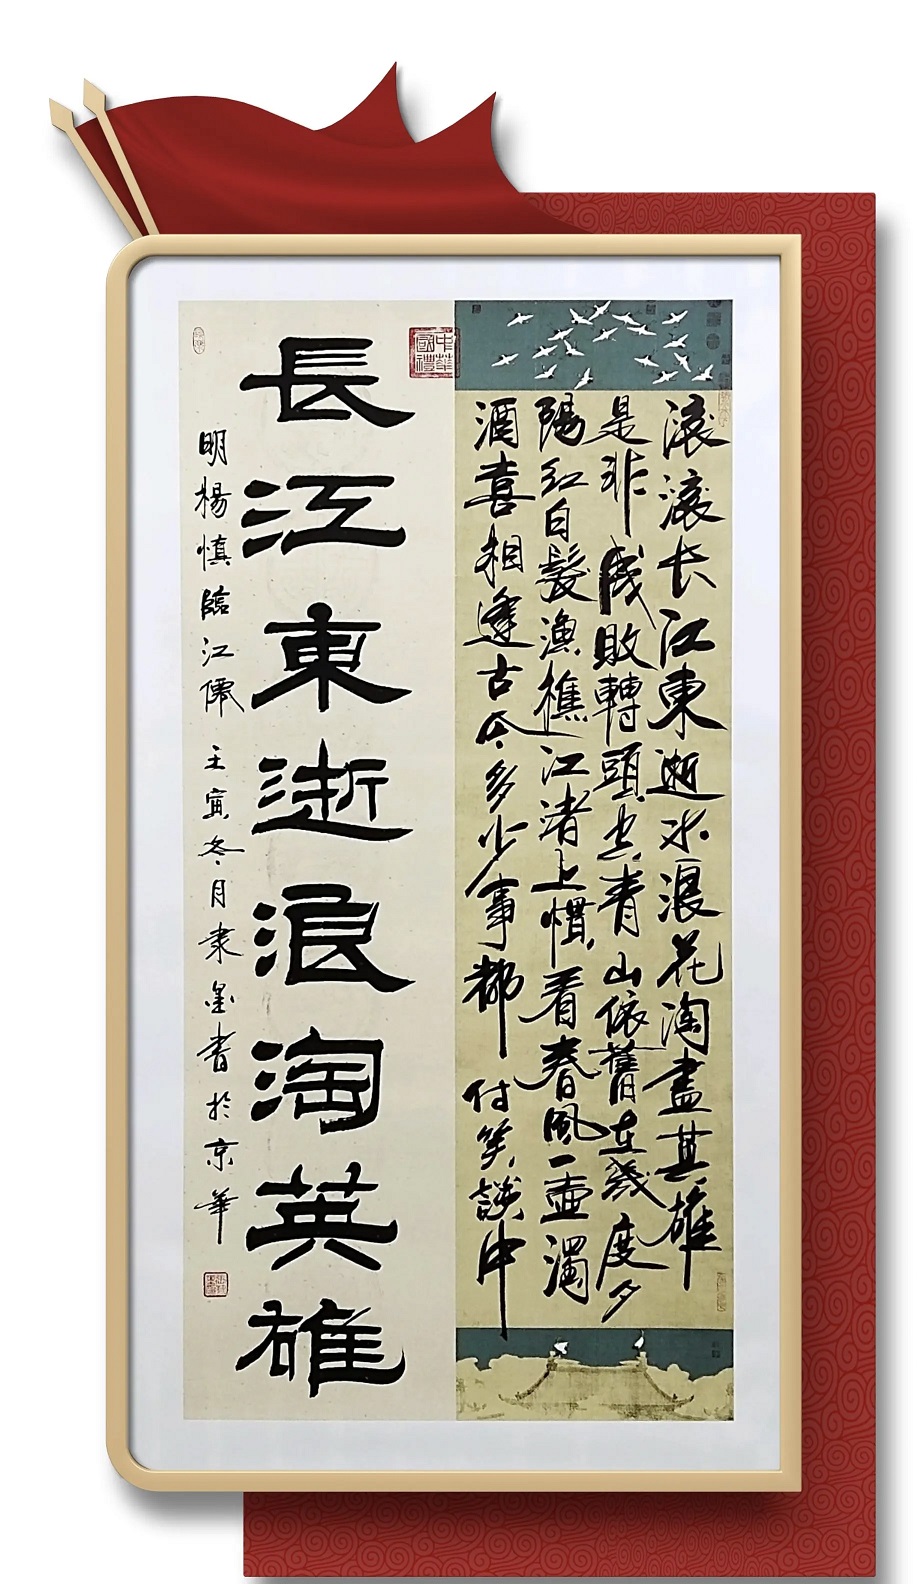 滚滚长江東逝水浪花淘盡英雄
是非成敗轉頭空青山依舊在幾度夕
陽紅白髮漁樵江渚上慣看春風一壺濁
酒喜相逢古今多少事都付笑談中
中華國禮
長江東逝浪淘英雄
明楊慎臨江僊 壬寅冬月隶墨書於京華